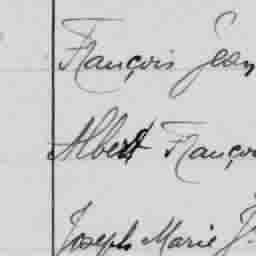 François Jean
Albert François
Joseph Marie J.